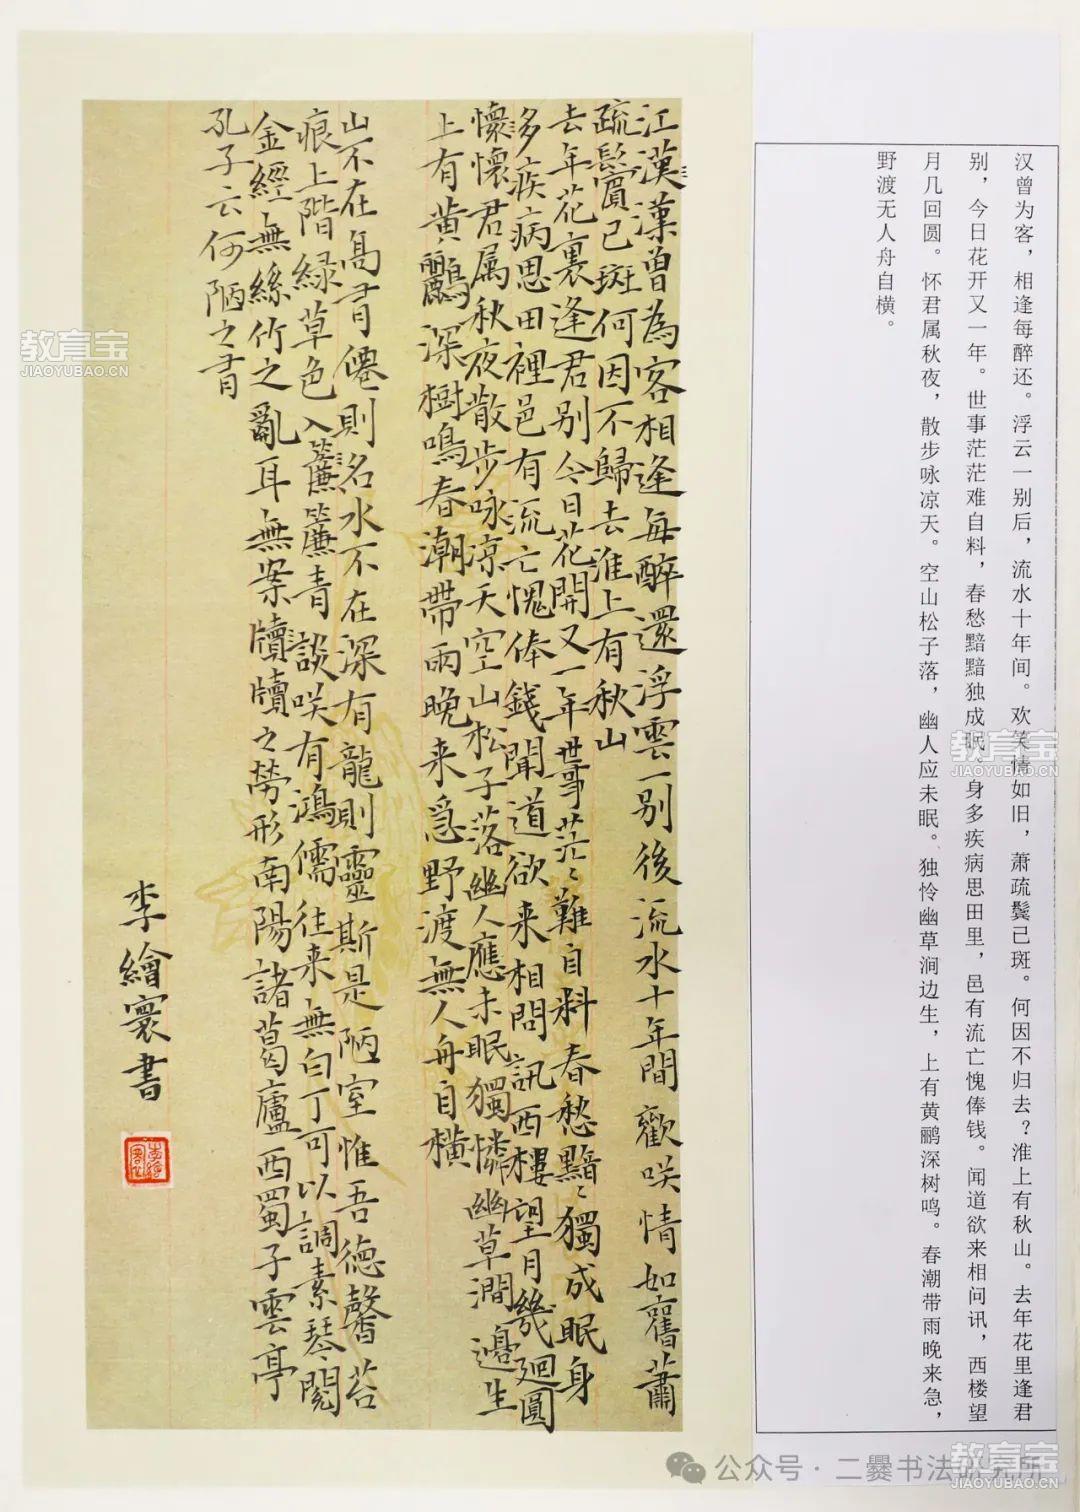 江漢漢曾為客相逢每醉還浮雲一别後流水十年間歡咲情如舊蕭
疏鬢已斑何因不歸去淮上有秋山
去年花裏逢君别今日花開又一年世事茫〻難自料春愁黯〻獨成眠身
多疾病思田裡邑有流亡愧俸錢聞道欲来相問訊西樓望月幾廻圓
懷懷君属秋夜散步咏涼天空山松子落幽人應未眠獨憐幽草澗邊生
上有黄鸝深樹鳴春潮帶雨晚来急野渡無人舟自横
山不在高有僊則名水不在深有龍則靈斯是陋室惟吾德馨苔
痕上階緑草色入簾簾青談咲有鴻儒往来無白丁可以調素琴閱
金經無絲竹之亂耳無案牘牘之勞形南陽諸葛廬西蜀子雲亭
孔子云何陋之有
李繪寰書
汉曾为客，相逢每醉还。浮云一别后，流水十年间。欢笑情如旧，萧疏鬓已斑。何因不归去？淮上有秋山。去年花里逢君
别，今日花开又一年。世事茫茫难自料，春愁黯黯独成眠。身多疾病思田里，邑有流亡愧俸钱。闻道欲来相问讯，西楼望
月几回圆。怀君属秋夜，散步咏凉天。空山松子落，幽人应未眠。独怜幽草涧边生，上有黄鹂深树鸣。春潮带雨晚来急，
野渡无人舟自横。
教育宝
JIAOYUBAO.CN
教育宝
JIAOYUBAO.CN
公众号·二爨书法研究所
教育宝
JIAOYUBAO.CN